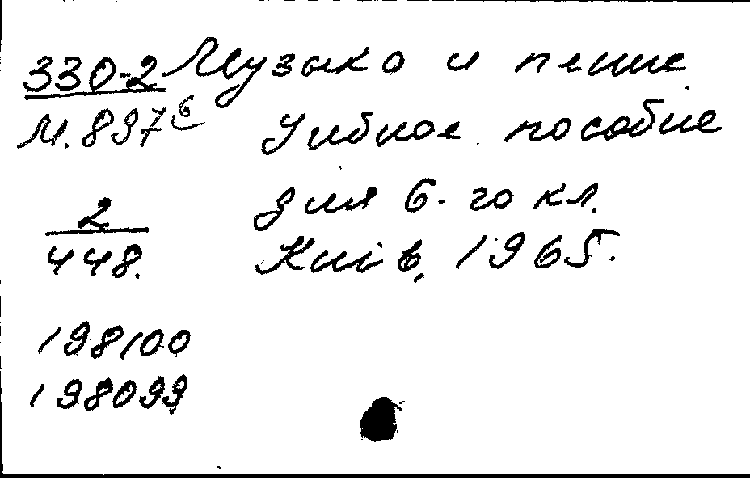 330-2 Музыка и пение
М.897⁶ Учебное пособие
для 6-го кл.
2
448.
Київ, 1965.
198100
198099